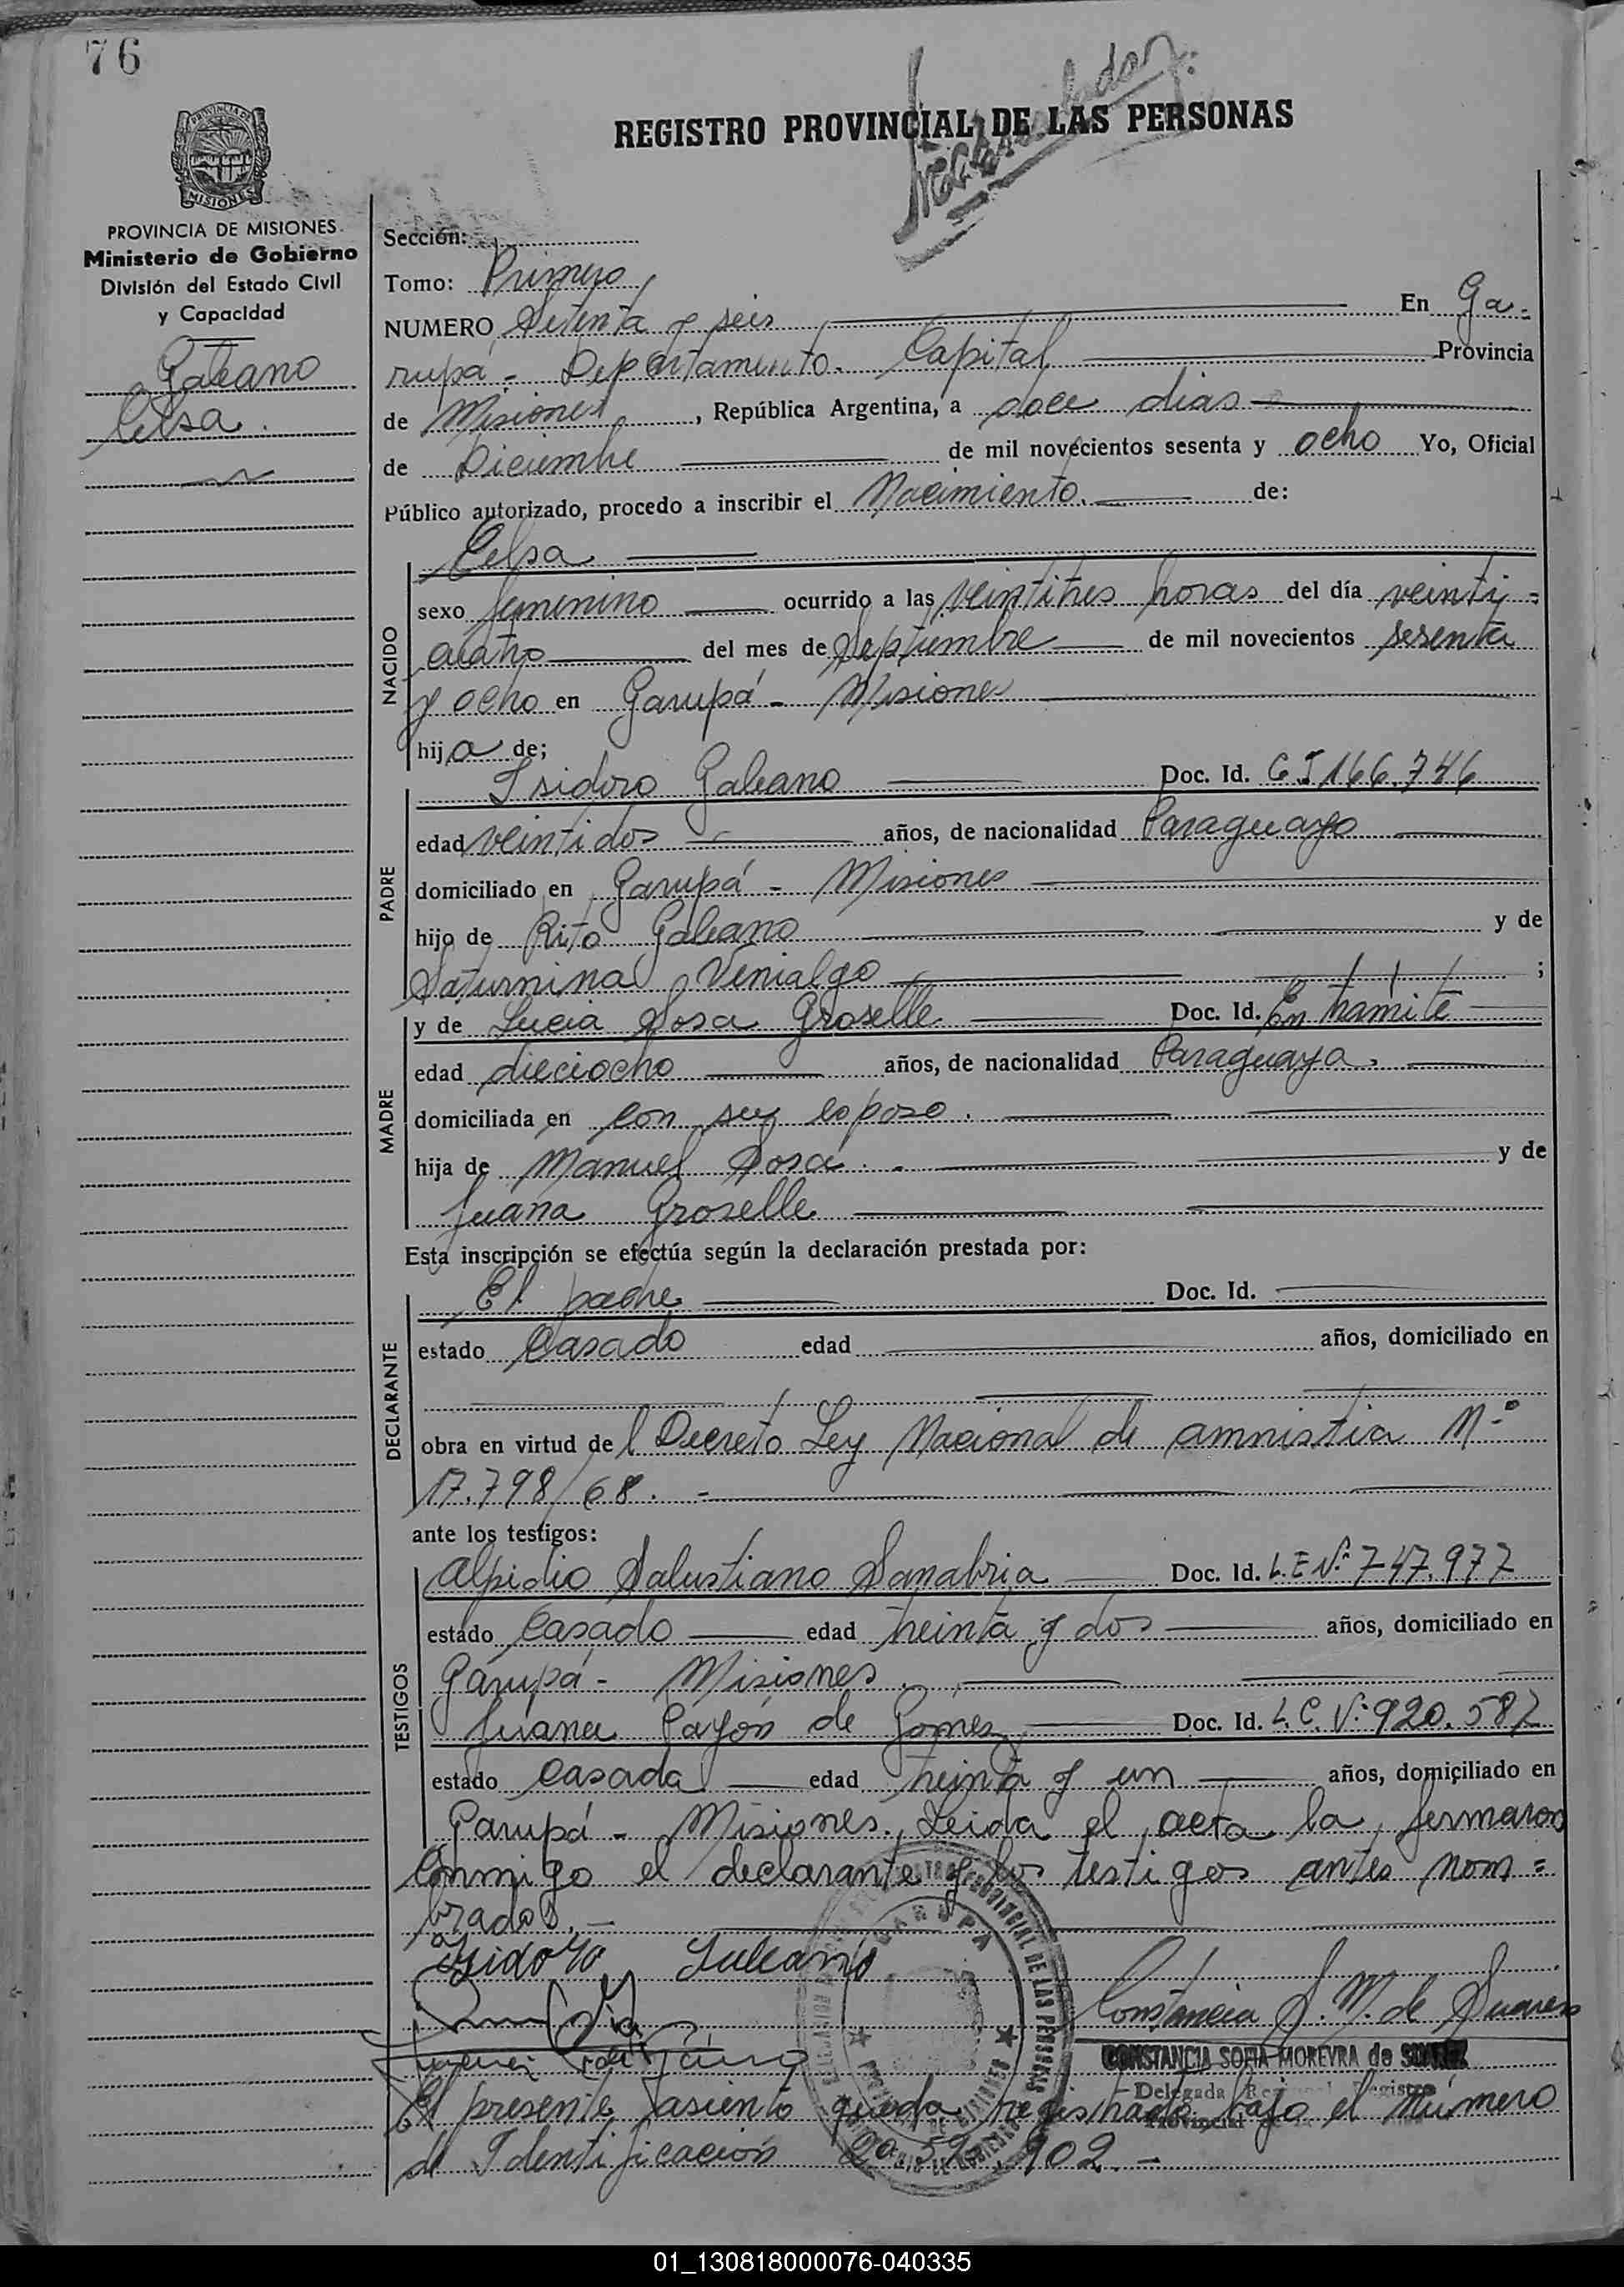 76
REGISTRO PROVINCIAL DE LAS PERSONAS
PROVINCIA DE MISIONES
MISIONES
PROVINCIA DE MISIONES
Ministerio de Gobierno
División del Estado Civil
y Capacidad
Galeano
Celsa.
Sección:
Tomo: Primero
NUMERO Setenta y seis En Ga-
rupá - Departamento - Capital Provincia
de Misiones, República Argentina, a doce dias
de Diciembre de mil novecientos sesenta y ocho Yo, Oficial
Público autorizado, procedo a inscribir el Nacimiento. de:
Celsa
NACIDO
sexo femenino ocurrido a las veintitres horas del día veinti-
cuatro del mes de Septiembre de mil novecientos sesenta
y ocho en Garupá - Misiones
hija de;
PADRE
Isidoro Galeano Doc. Id. C I 166.746
edad veintidos años, de nacionalidad Paraguayo
domiciliado en Garupá - Misiones
hijo de Rito Galeano y de
Saturnina Venialgo ;
MADRE
y de Lucia Sosa Groselle Doc. Id. En tramite
edad dieciocho años, de nacionalidad Paraguaya.
domiciliada en con su esposo.
hija de Manuel Sosa. y de
Juana Groselle
Esta inscripción se efectúa según la declaración prestada por:
DECLARANTE
El padre Doc. Id.
estado Casado edad años, domiciliado en
obra en virtud del Decreto Ley Nacional de amnistia Nº
17.798/68. -
ante los testigos:
TESTIGOS
Alpidio Salustiano Sanabria Doc. Id. L.E Nº 747.977
estado Casado edad treinta y dos años, domiciliado en
Garupá - Misiones.
Juana Payón de Gomez Doc. Id. L.C. Nº 920.587
estado casada edad treinta y un años, domiciliado en
Garupá - Misiones. Leida el acta la firmaron
conmigo el declarante y los testigos antes nom=
brados. -
Isidoro Galeano
Constancia S. M. de Suarez
CONSTANCIA SOFIA MOREYRA de SUAREZ
Delegada Registro
Provincial
GARUPA
PROVINCIAL DE LAS PERSONAS
El presente asiento queda registrado bajo el número
de Identificación 902. -
01_130818000076-040335